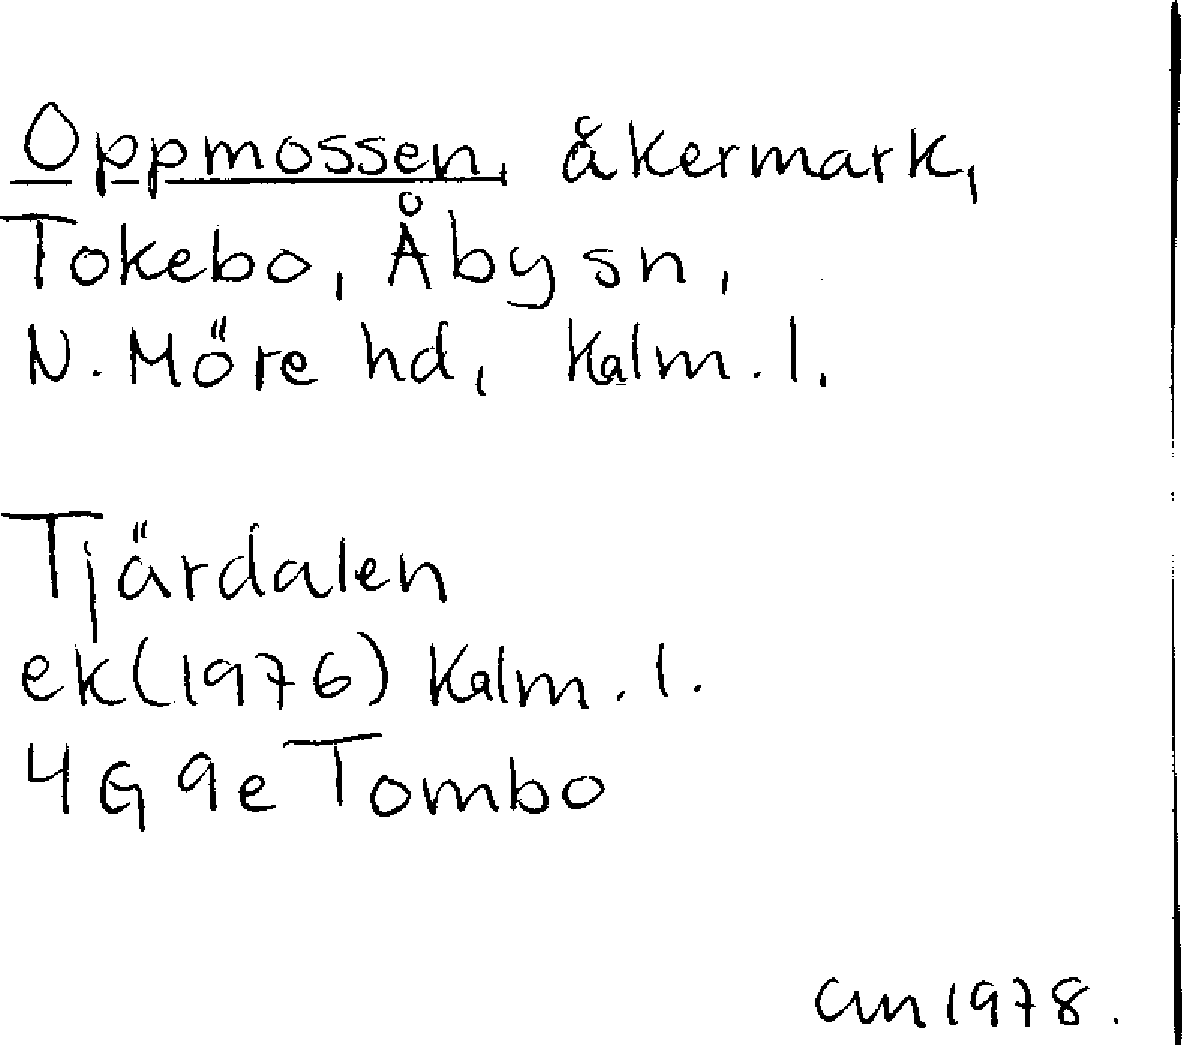 Oppmossen, åkermark,
Tokebo, Åby sn,
N. Möre hd, Kalm. l.
Tjärdalen
ek(1976) Kalm. l.
4G 9e Tombo
cm 1978.